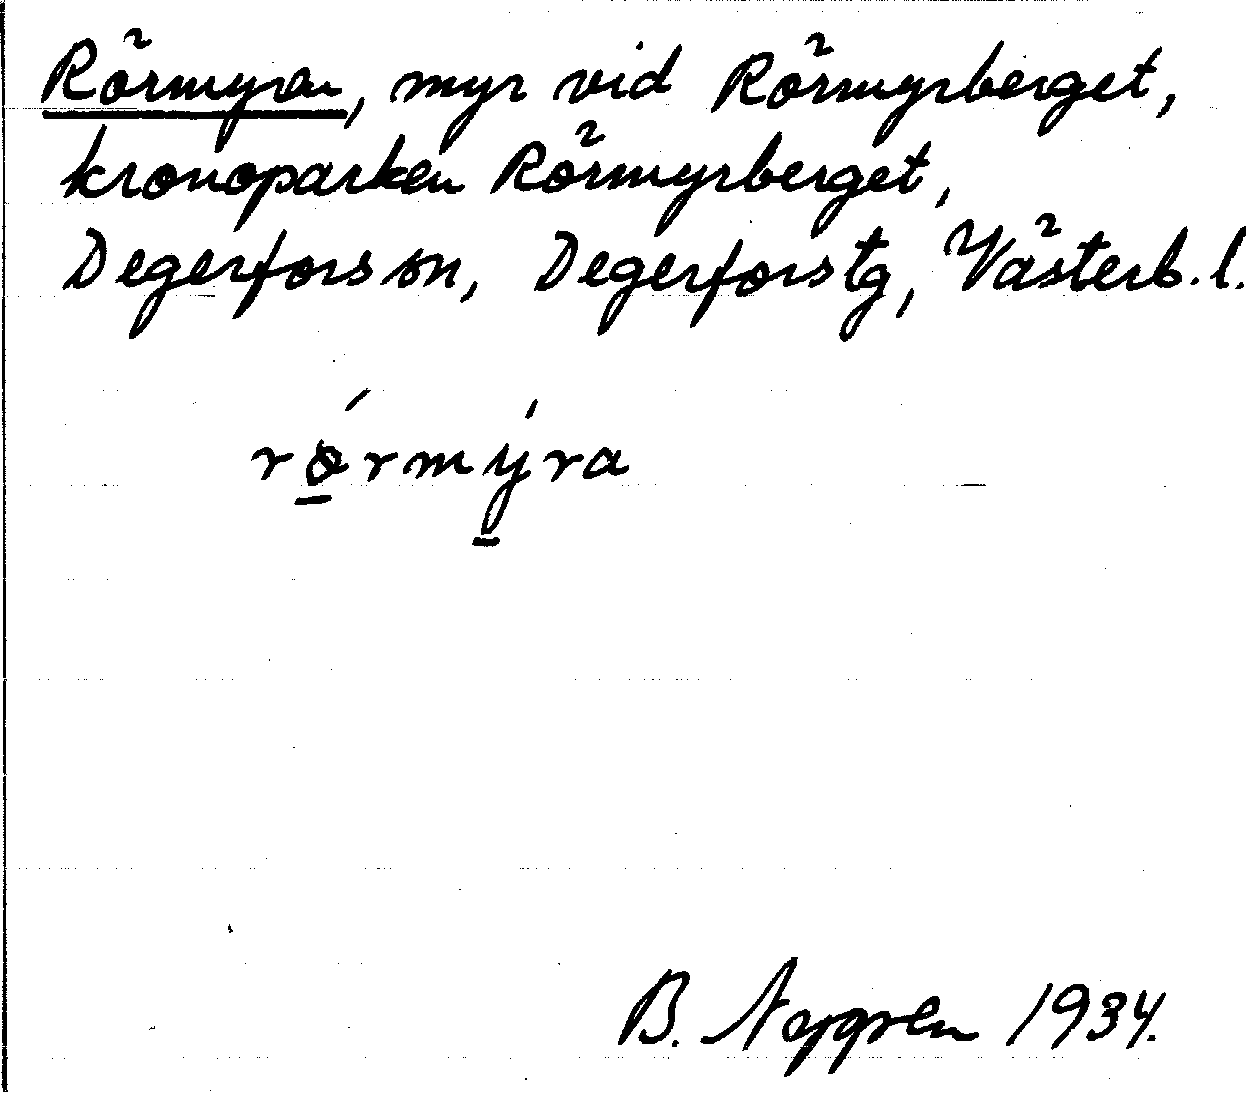 Rörmyran, myr vid Rörmyrberget,
kronoparken Rörmyrberget,
Degerfors sn, Degerfors tg, Västerb. l.
rǿ̱rmý̱ra
B. 1934.